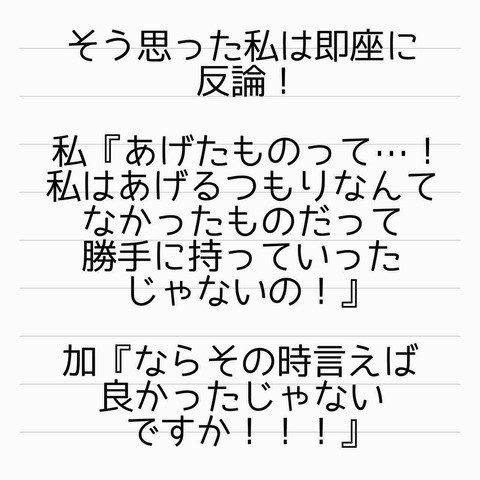 そう思った私は即座に
反論！
私『あげたものって…！
私はあげるつもりなんて
なかったものだって
勝手に持っていった
じゃないの！』
加『ならその時言えば
良かったじゃない
ですか！！！』